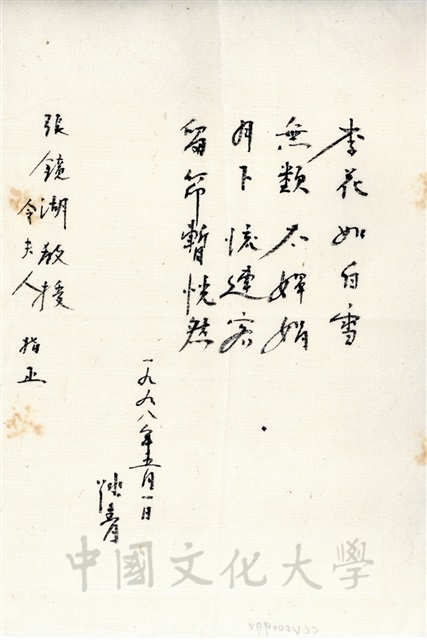 李花如白雪
無類不嬋娟
月下懷遠客
留筇暫恍然
一九九八年五月一日
張鏡湖教授
令夫人 指正
中國文化大學